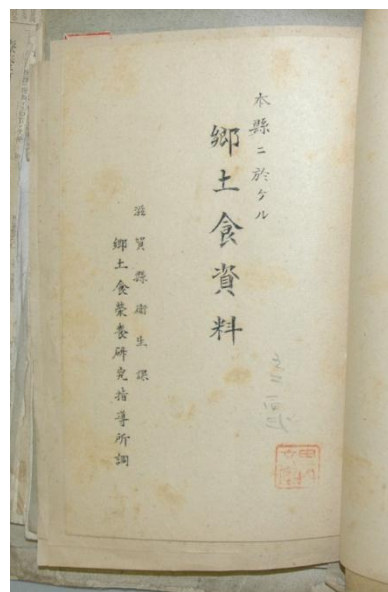 本縣ニ於ケル
郷土食資料
滋賀縣衛生課
郷土食栄養研究指導所調